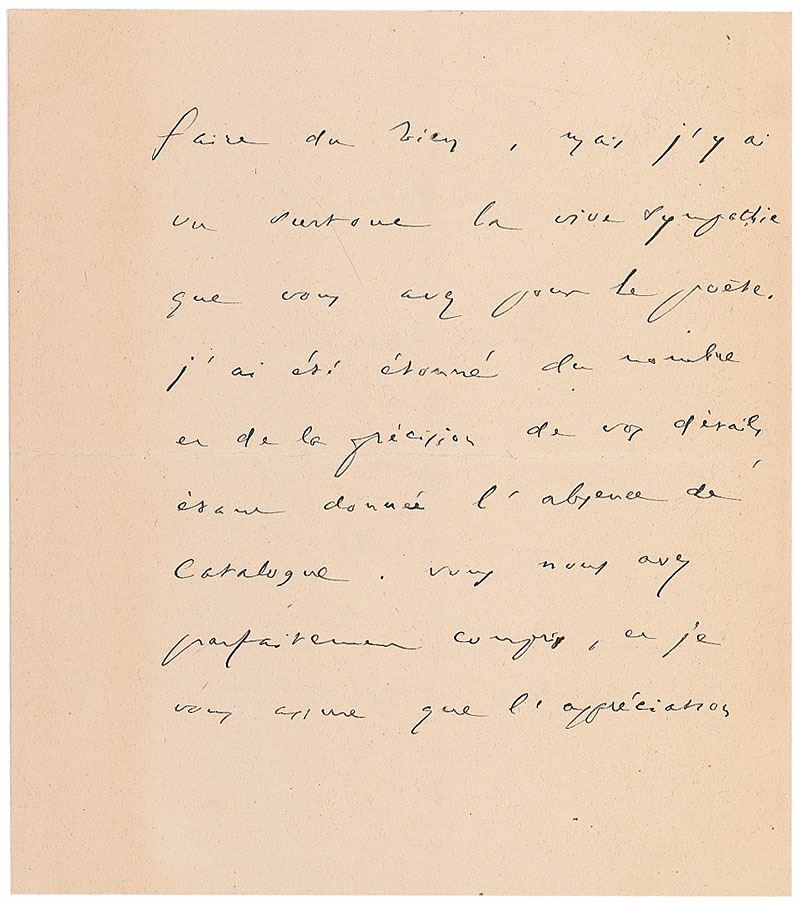 faire du bien, mais j'y ai
vu surtout la vive sympathie
que vous avez pour le poète.
j'ai été étonné du nombre
et de la précision de vos détails,
étant donné l'absence de
Catalogue. vous nous avez
parfaitement compris, et je
vous assure que l'appréciation